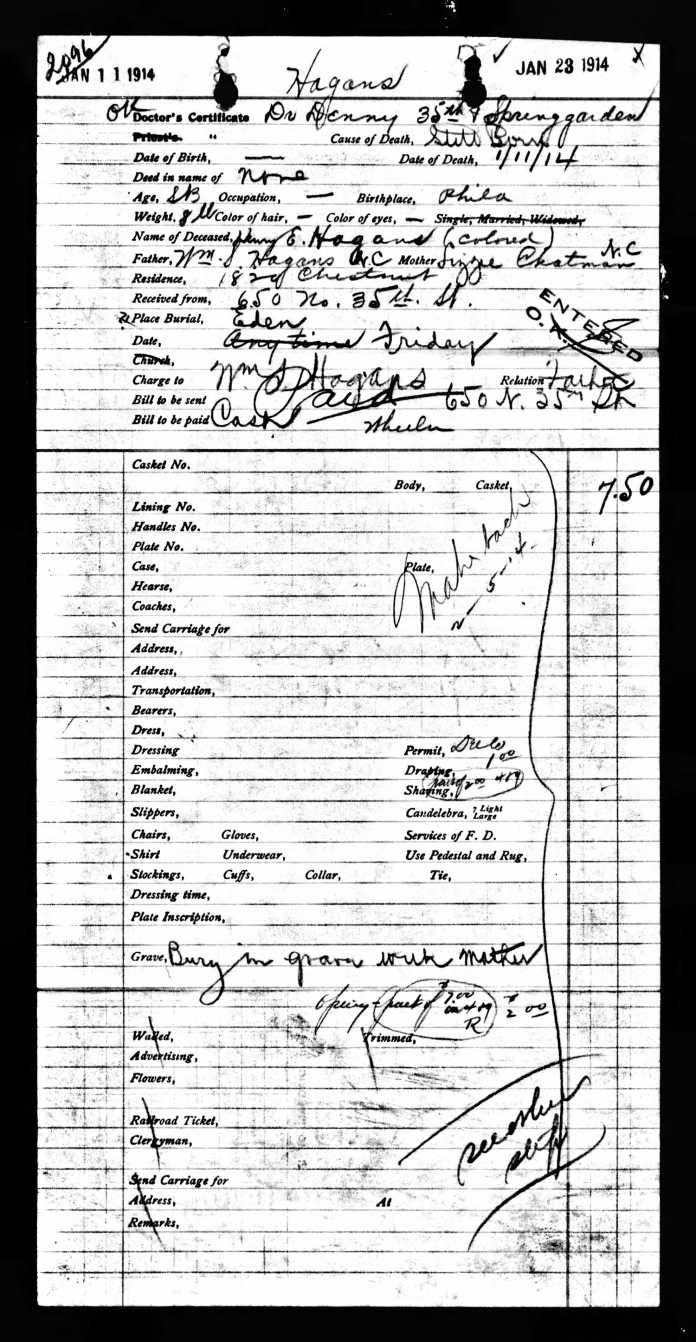 2096
JAN 11 1914
JAN 23 1914 x
Hagans
OK Doctor's Certificate Dr Denny 35th & Springgarden
Priest's " Cause of Death, Still Born
Date of Birth, — Date of Death, 1/11/14
Deed in name of None
Age, SB Occupation, — Birthplace, Phila
Weight, 8 lb Color of hair, — Color of eyes, — Single, Married, Widowed,
Name of Deceased, Henry E. Hagans (colored)
Father, Wm. S. Hagans N.C Mother Lizzie Chatman N.C
Residence, 1829 Chestnut
Received from, 650 No. 35th. St.
Place Burial, Eden
Date, Any time Friday
ENTERED
O.K.
Church,
Charge to Wm S. Hagans Relation Father
Bill to be sent Paid 650 N. 35th St
Bill to be paid Cash Wheeler
Casket No.
Body, Casket, 7.50
Lining No.
Handles No.
Plate No.
Case, Plate,
2-5-14
Hearse,
Coaches,
Send Carriage for
Address,
Address,
Transportation,
Bearers,
Dress,
Dressing Permit, 1 00
Embalming, Draping,
Blanket, Shaving, part of 2 00
Slippers, Candelebra, ? Light Large
Chairs, Gloves, Services of F. D.
Shirt Underwear, Use Pedestal and Rug,
Stockings, Cuffs, Collar, Tie,
Dressing time,
Plate Inscription,
Grave, Bury in grave with mother
Opening - part of $7.00 $2 00
R
Walled, Trimmed,
Advertising,
Flowers,
Railroad Ticket,
Clergyman,
see other
slip
Send Carriage for
Address, At
Remarks,